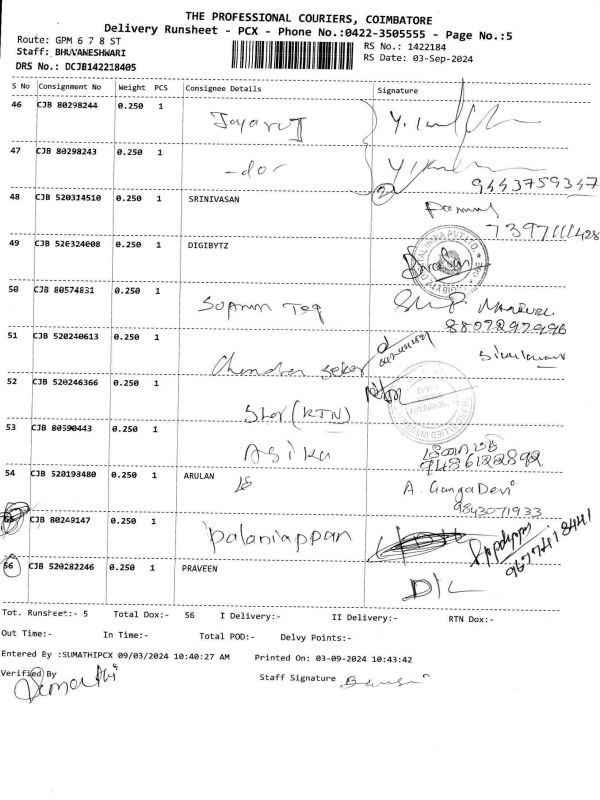 THE PROFESSIONAL COURIERS, COIMBATORE
Delivery Runsheet - PCX - Phone No.:0422-3505555 - Page No.:5
Route: GPM 6 7 8 ST
RS No.: 1422184
Staff: BHUVANESHWARI
RS Date: 03-Sep-2024
DRS No.: DCJB142218405
S No Consignment No Weight PCS Consignee Details Signature
46 CJB 80298244 0.250 1
47 CJB 80298243 0.250 1 -do-
2 9443759347
48 CJB 520314510 0.250 1 SRINIVASAN
7397111428
49 CJB 520324008 0.250 1 DIGIBYTZ
50 CJB 80574831 0.250 1
8807297996
51 CJB 520240613 0.250 1 Chandra Sekar
52 CJB 520246366 0.250 1 (KTN)
53 CJB 80590443 0.250 1 Asika
7486122892
54 CJB 520193480 0.250 1 ARULAN A. Ganga Devi
9843071933
55 CJB 80249147 0.250 1 Palaniappan
56 CJB 520282246 0.250 1 PRAVEEN D/L
Tot. Runsheet:- 5 Total Dox:- 56 I Delivery:- II Delivery:- RTN Dox:-
Out Time:- In Time:- Total POD:- Delvy Points:-
Entered By :SUMATHIPCX 09/03/2024 10:40:27 AM Printed On: 03-09-2024 10:43:42
Verified By Staff Signature